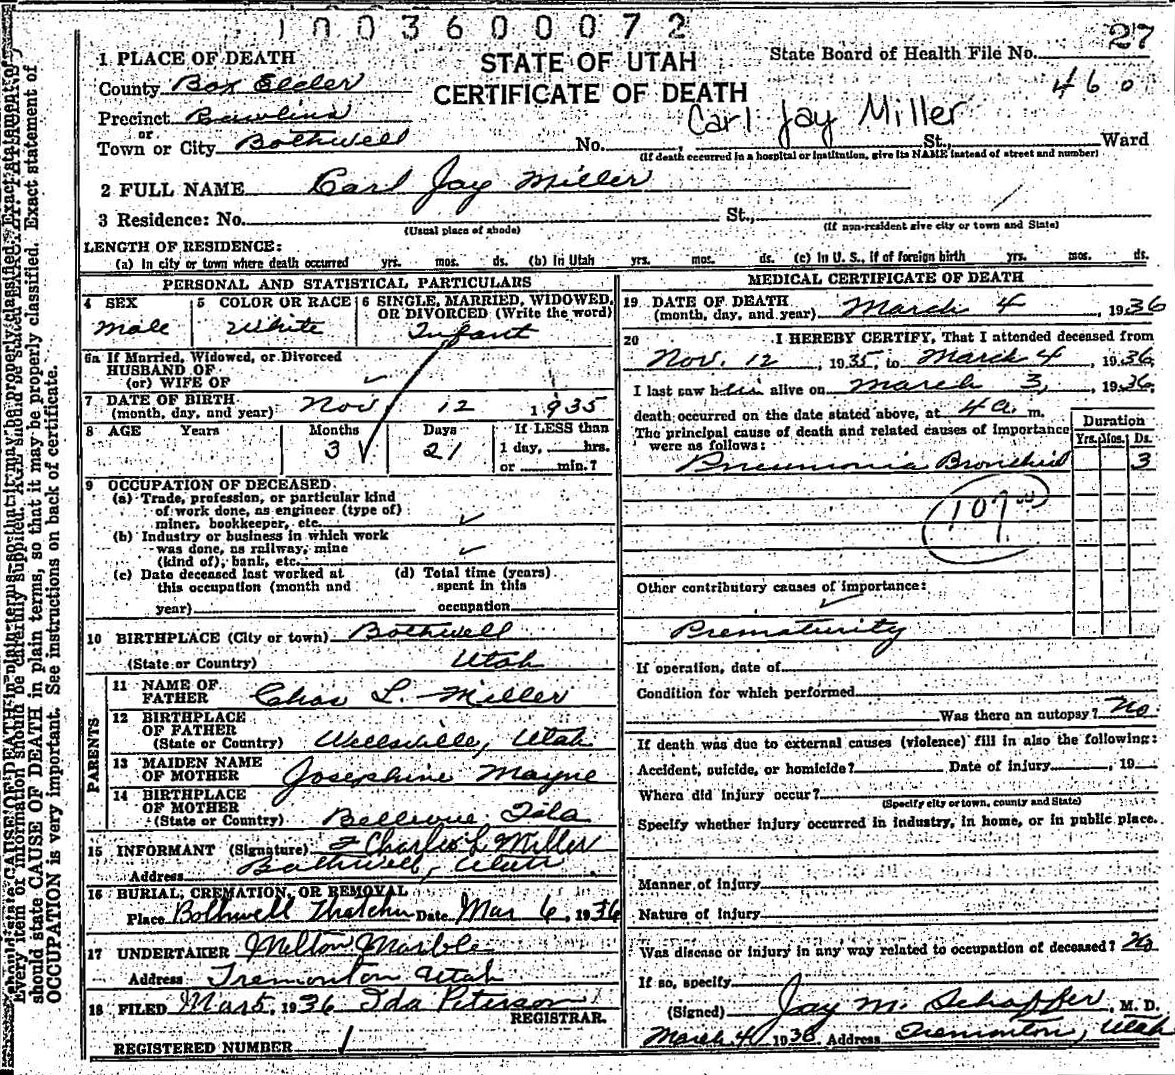 1003600072
27
1 PLACE OF DEATH
STATE OF UTAH
State Board of Health File No.
County Box Elder
460
CERTIFICATE OF DEATH
Precinct
Carl Jay Miller
or
Town or City Bothwell No. St., Ward
(If death occurred in a hospital or institution, give its NAME instead of street and number)
2 FULL NAME Carl Jay Miller
3 Residence: No. St.,
(Usual place of abode) (If non-resident give city or town and State)
LENGTH OF RESIDENCE:
(a) In city or town where death occurred yrs. mos. ds. (b) In Utah yrs. mos. ds. (c) In U. S., if of foreign birth yrs. mos. ds.
PERSONAL AND STATISTICAL PARTICULARS
4 SEX
Male
5 COLOR OR RACE
White
6 SINGLE, MARRIED, WIDOWED, OR DIVORCED (Write the word)
Infant
6a If Married, Widowed, or Divorced
HUSBAND OF
(or) WIFE OF ✓
7 DATE OF BIRTH
(month, day, and year) Nov. 12 1935
8 AGE Years Months Days If LESS than
3 21 1 day, hrs.
or min.?
9 OCCUPATION OF DECEASED
(a) Trade, profession, or particular kind
of work done, as engineer (type of)
miner, bookkeeper, etc. ✓
(b) Industry or business in which work
was done, as railway, mine
(kind of), bank, etc. ✓
(c) Date deceased last worked at
this occupation (month and
year)
(d) Total time (years)
spent in this
occupation
10 BIRTHPLACE (City or town) Bothwell
(State or Country) Utah
PARENTS
11 NAME OF
FATHER Chas L. Miller
12 BIRTHPLACE
OF FATHER
(State or Country) Wellsville, Utah
13 MAIDEN NAME
OF MOTHER Josephine Mayne
14 BIRTHPLACE
OF MOTHER
(State or Country) Bellevue, Ida
15 INFORMANT (Signature) Charles L Miller
Address Bothwell, Utah
16 BURIAL, CREMATION, OR REMOVAL
Place Bothwell Thatcher Date Mar 6, 1936
17 UNDERTAKER Milton Marble
Address Tremonton Utah
18 FILED Mar 5, 1936 Ida Peterson
REGISTRAR.
REGISTERED NUMBER 1
MEDICAL CERTIFICATE OF DEATH
19 DATE OF DEATH
(month, day, and year) March 4, 1936
20 I HEREBY CERTIFY, That I attended deceased from
Nov. 12, 1935, to March 4, 1936,
I last saw him alive on March 3, 1936,
death occurred on the date stated above, at 4 a. m.
The principal cause of death and related causes of importance
were as follows:
Duration
Yrs. Mos. Ds.
Pneumonia Bronchial 3
107
Other contributory causes of importance:
✓
Prematurity
If operation, date of
Condition for which performed
Was there an autopsy? No
If death was due to external causes (violence) fill in also the following:
Accident, suicide, or homicide? Date of injury , 19
Where did injury occur?
(Specify city or town, county and State)
Specify whether injury occurred in industry, in home, or in public place.
Manner of injury
Nature of injury
Was disease or injury in any way related to occupation of deceased? No
If so, specify
(Signed) Jay M. Schaffer, M. D.
March 4, 1936 Address Tremonton, Utah
should state CAUSE OF DEATH in plain terms, so that it may be properly classified. Exact statement of
OCCUPATION is very important. See instructions on back of certificate.